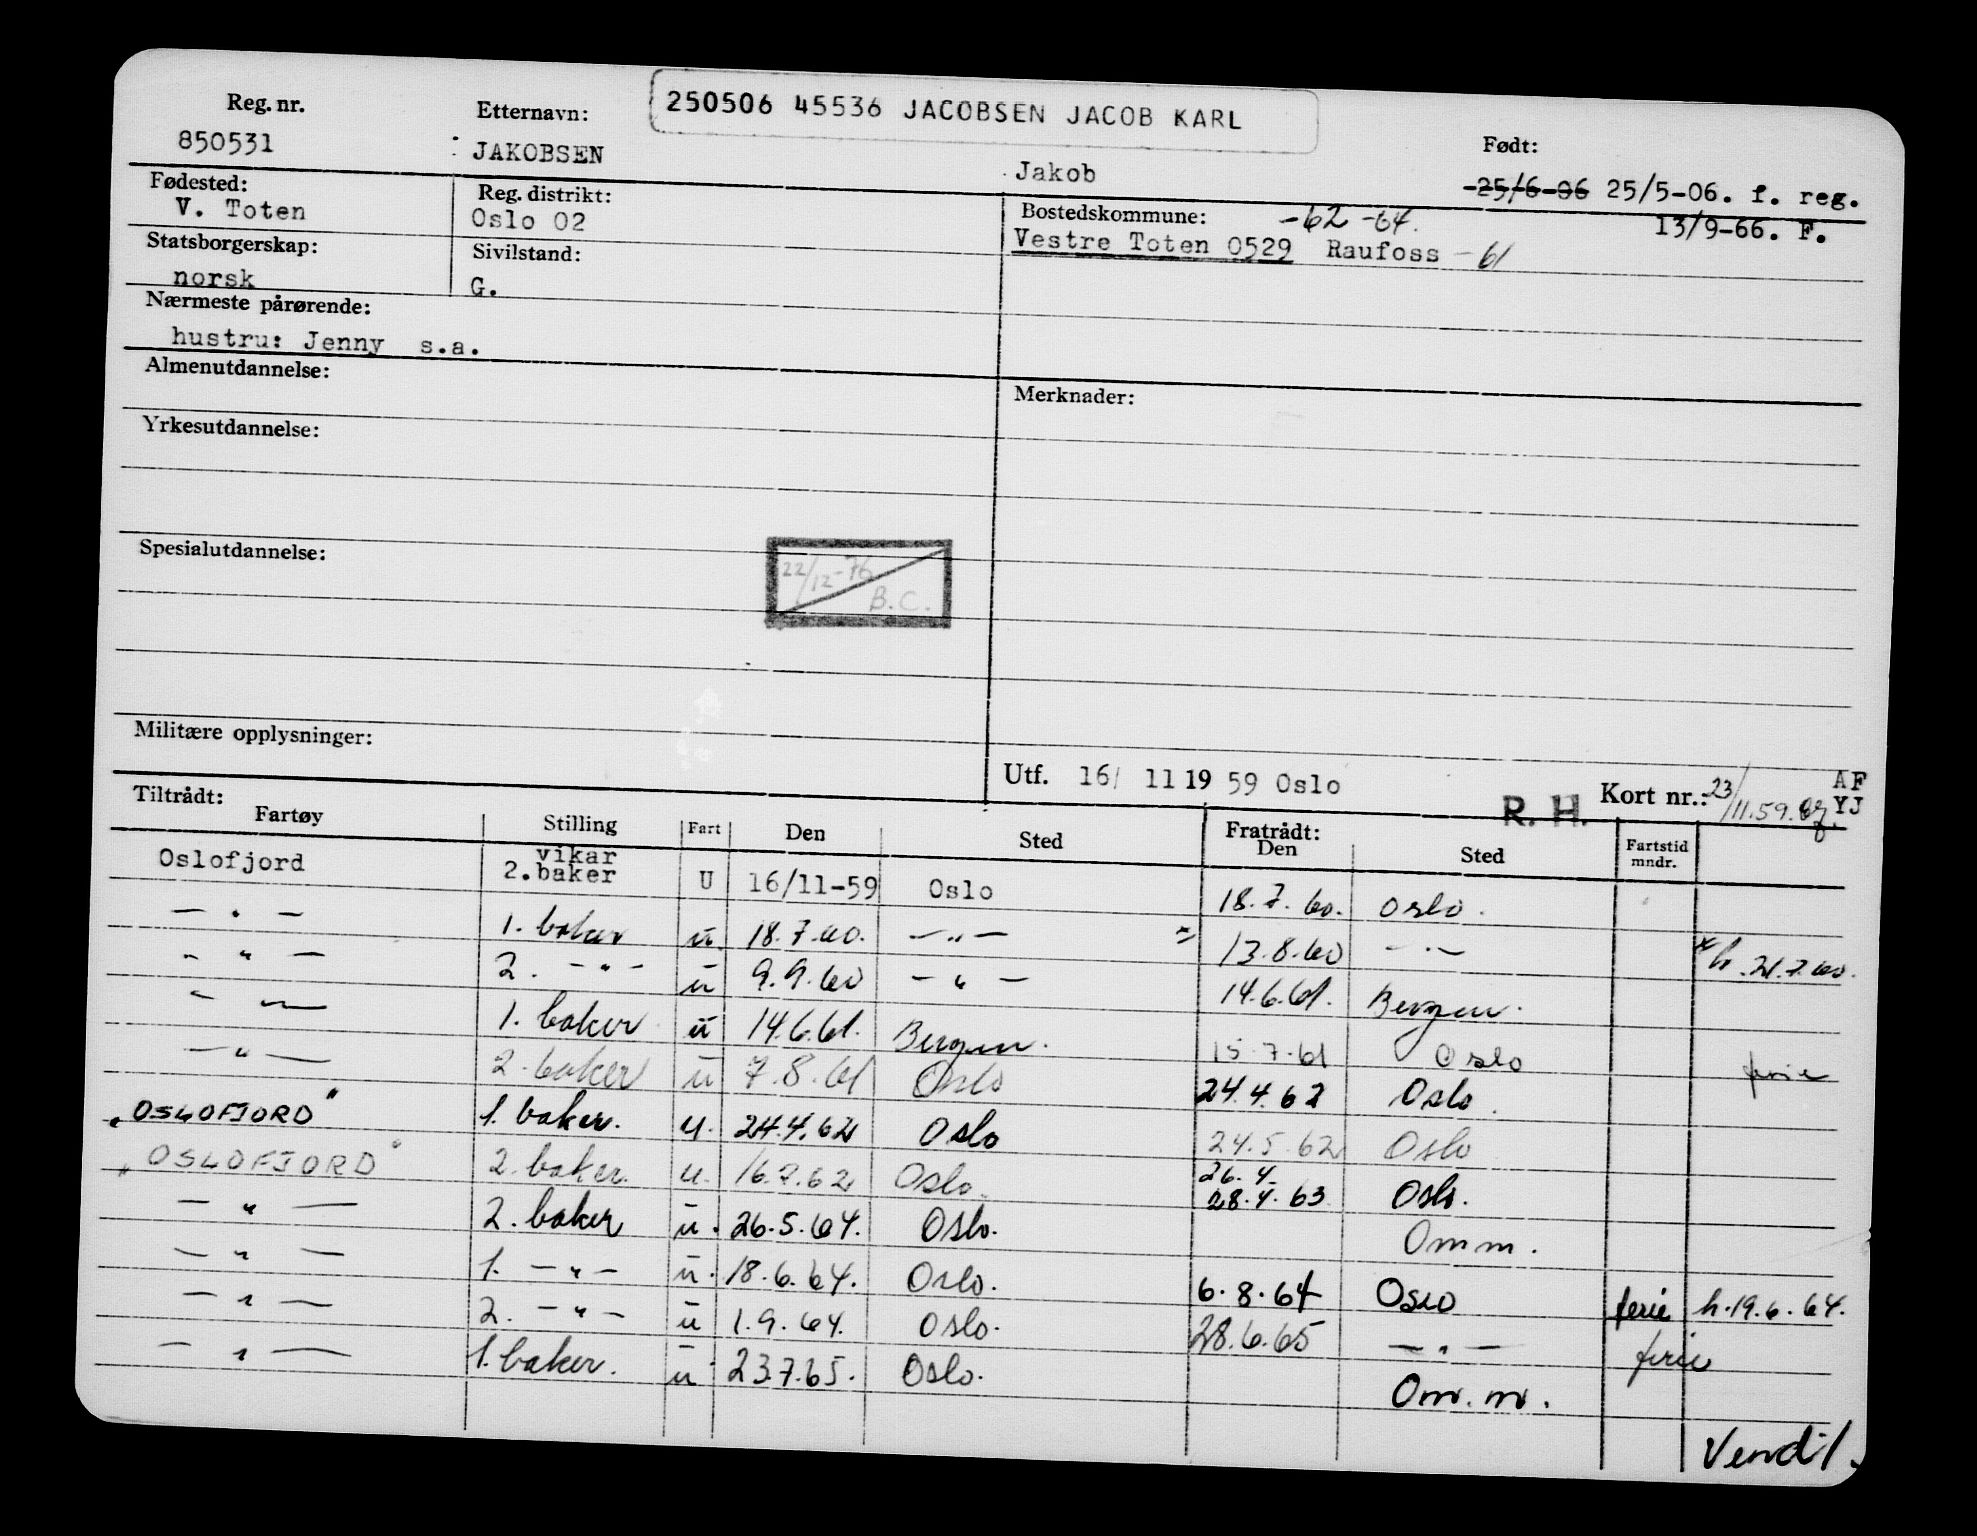 Reg. nr. Etternavn: 250506 45536 JACOBSEN JACOB KARL Født:
850531 JAKOBSEN Jakob -25/6-06 25/5-06. f. reg.
13/9-66. F.
Fødested: Reg. distrikt: Bostedskommune: -62 -64.
V. Toten Oslo 02 Vestre Toten 0529 Raufoss -61
Statsborgerskap: Sivilstand:
norsk G.
Nærmeste pårørende:
hustru: Jenny s.a.
Almenutdannelse: Merknader:
Yrkesutdannelse:
Spesialutdannelse:
22/12-76 B.C.
Militære opplysninger:
Utf. 16/ 11 19 59 Oslo R. H. Kort nr.: 23/11.59. AF
YJ
Tiltrådt: Fratrådt:
Fartøy Stilling Fart Den Sted Den Sted Fartstid mndr.
Oslofjord vikar 2.baker U 16/11-59 Oslo 18.7.60. Oslo.
— " — 1. baker u. 18.7.60. — " — x 13.8.60 — " — x h. 21.7.60.
— " — 2. — " — u 9.9.60 — " — 14.6.61. Bergen.
— " — 1. baker u 14.6.61. Bergen. 15.7.61 Oslo ferie
— " — 2. baker u 7.8.61 Oslo 24.4.62 Oslo.
"OSLOFJORD" 1. baker. u. 24.4.62 Oslo 24.5.62 Oslo
"OSLOFJORD" 2. baker. u. 16.7.62 Oslo. 26.4. 28.4.63 Oslo.
— " — 2. baker u. 26.5.64. Oslo. Omm.
— " — 1. — " — u. 18.6.64. Oslo. 6.8.64 Oslo ferie h.19.6.64.
— " — 2. — " — u 1.9.64. Oslo. 28.6.65 — " — ferie
— " — 1. baker. u 23.7.65. Oslo. Om.m.
Vend!.